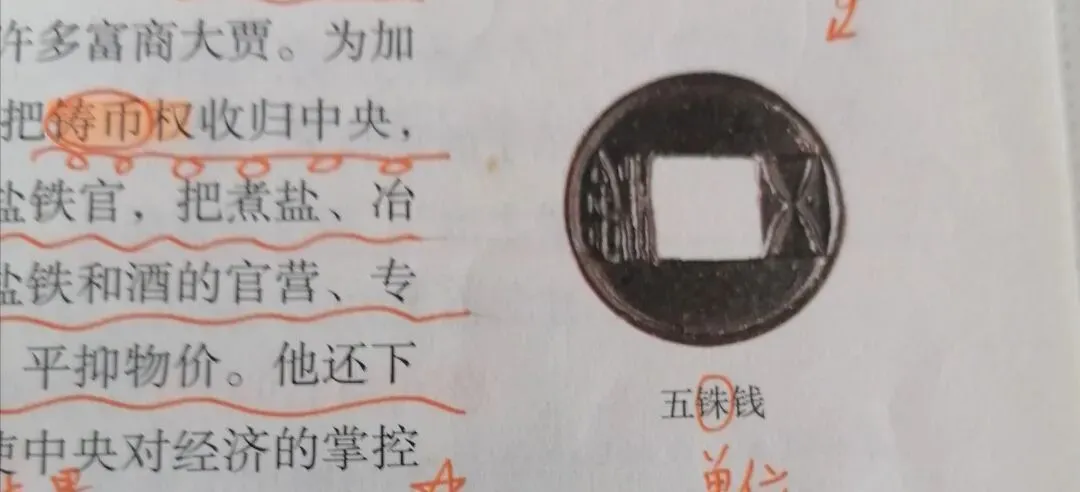 许多富商大贾。为加
把铸币权收归中央，
盐铁官，把煮盐、冶
盐铁和酒的官营、专
平抑物价。他还下
使中央对经济的掌控
五铢
五铢钱
单位